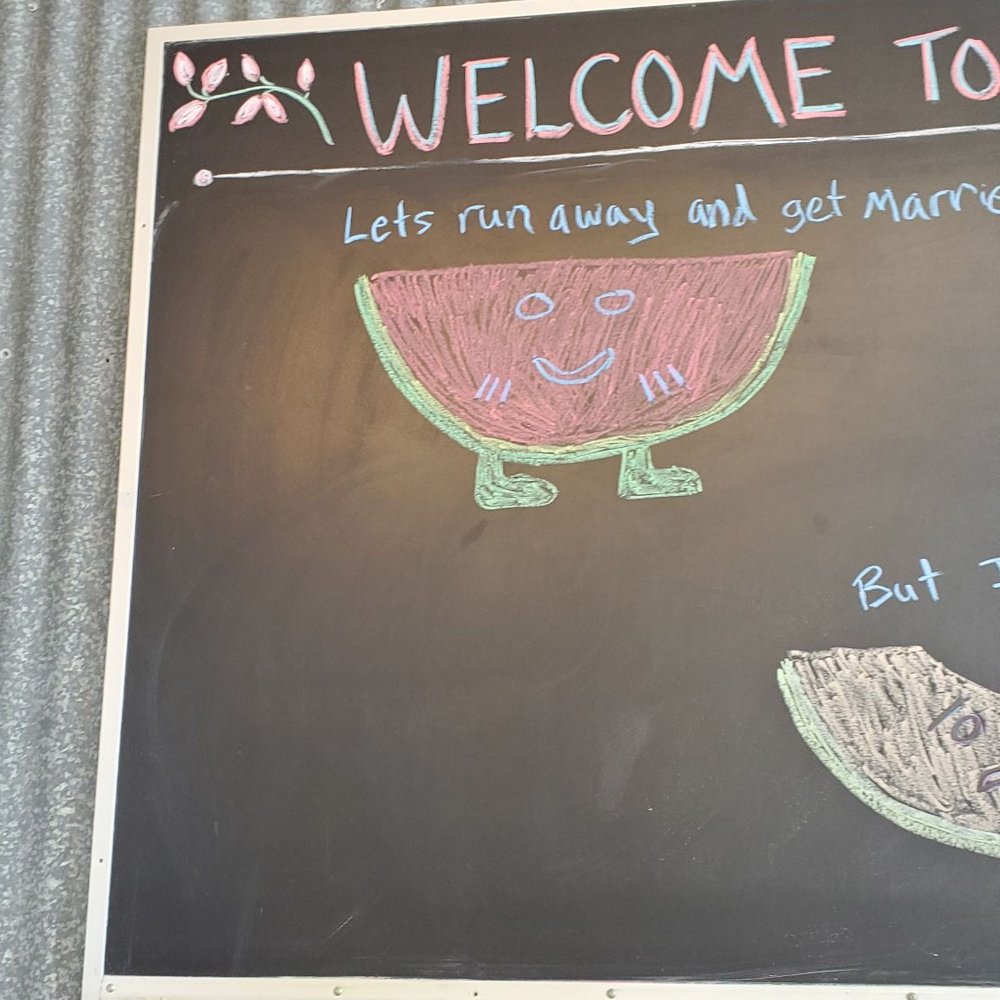 WELCOME TO
Lets run away and get Marrie
But I